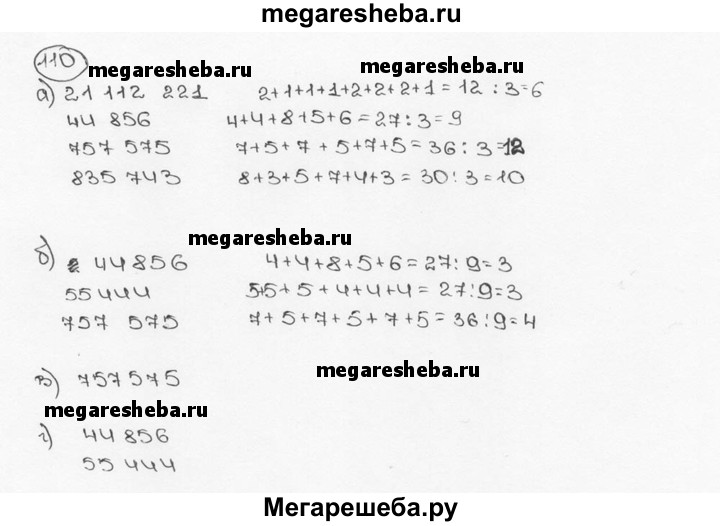 megaresheba.ru
110
megaresheba.ru megaresheba.ru
а) 21 112 221 2+1+1+1+2+2+2+1=12 : 3=6
44 856 4+4+8+5+6=27:3=9
757 575 7+5+7+5+7+5=36:3=12
835 743 8+3+5+7+4+3=30:3=10
megaresheba.ru
б) 44856 4+4+8+5+6=27:9=3
55444 5+5+5+4+4+4=27:9=3
757 575 7+5+7+5+7+5=36:9=4
megaresheba.ru
в) 757575
megaresheba.ru
г) 44856
55 444
Мегарешеба.ру